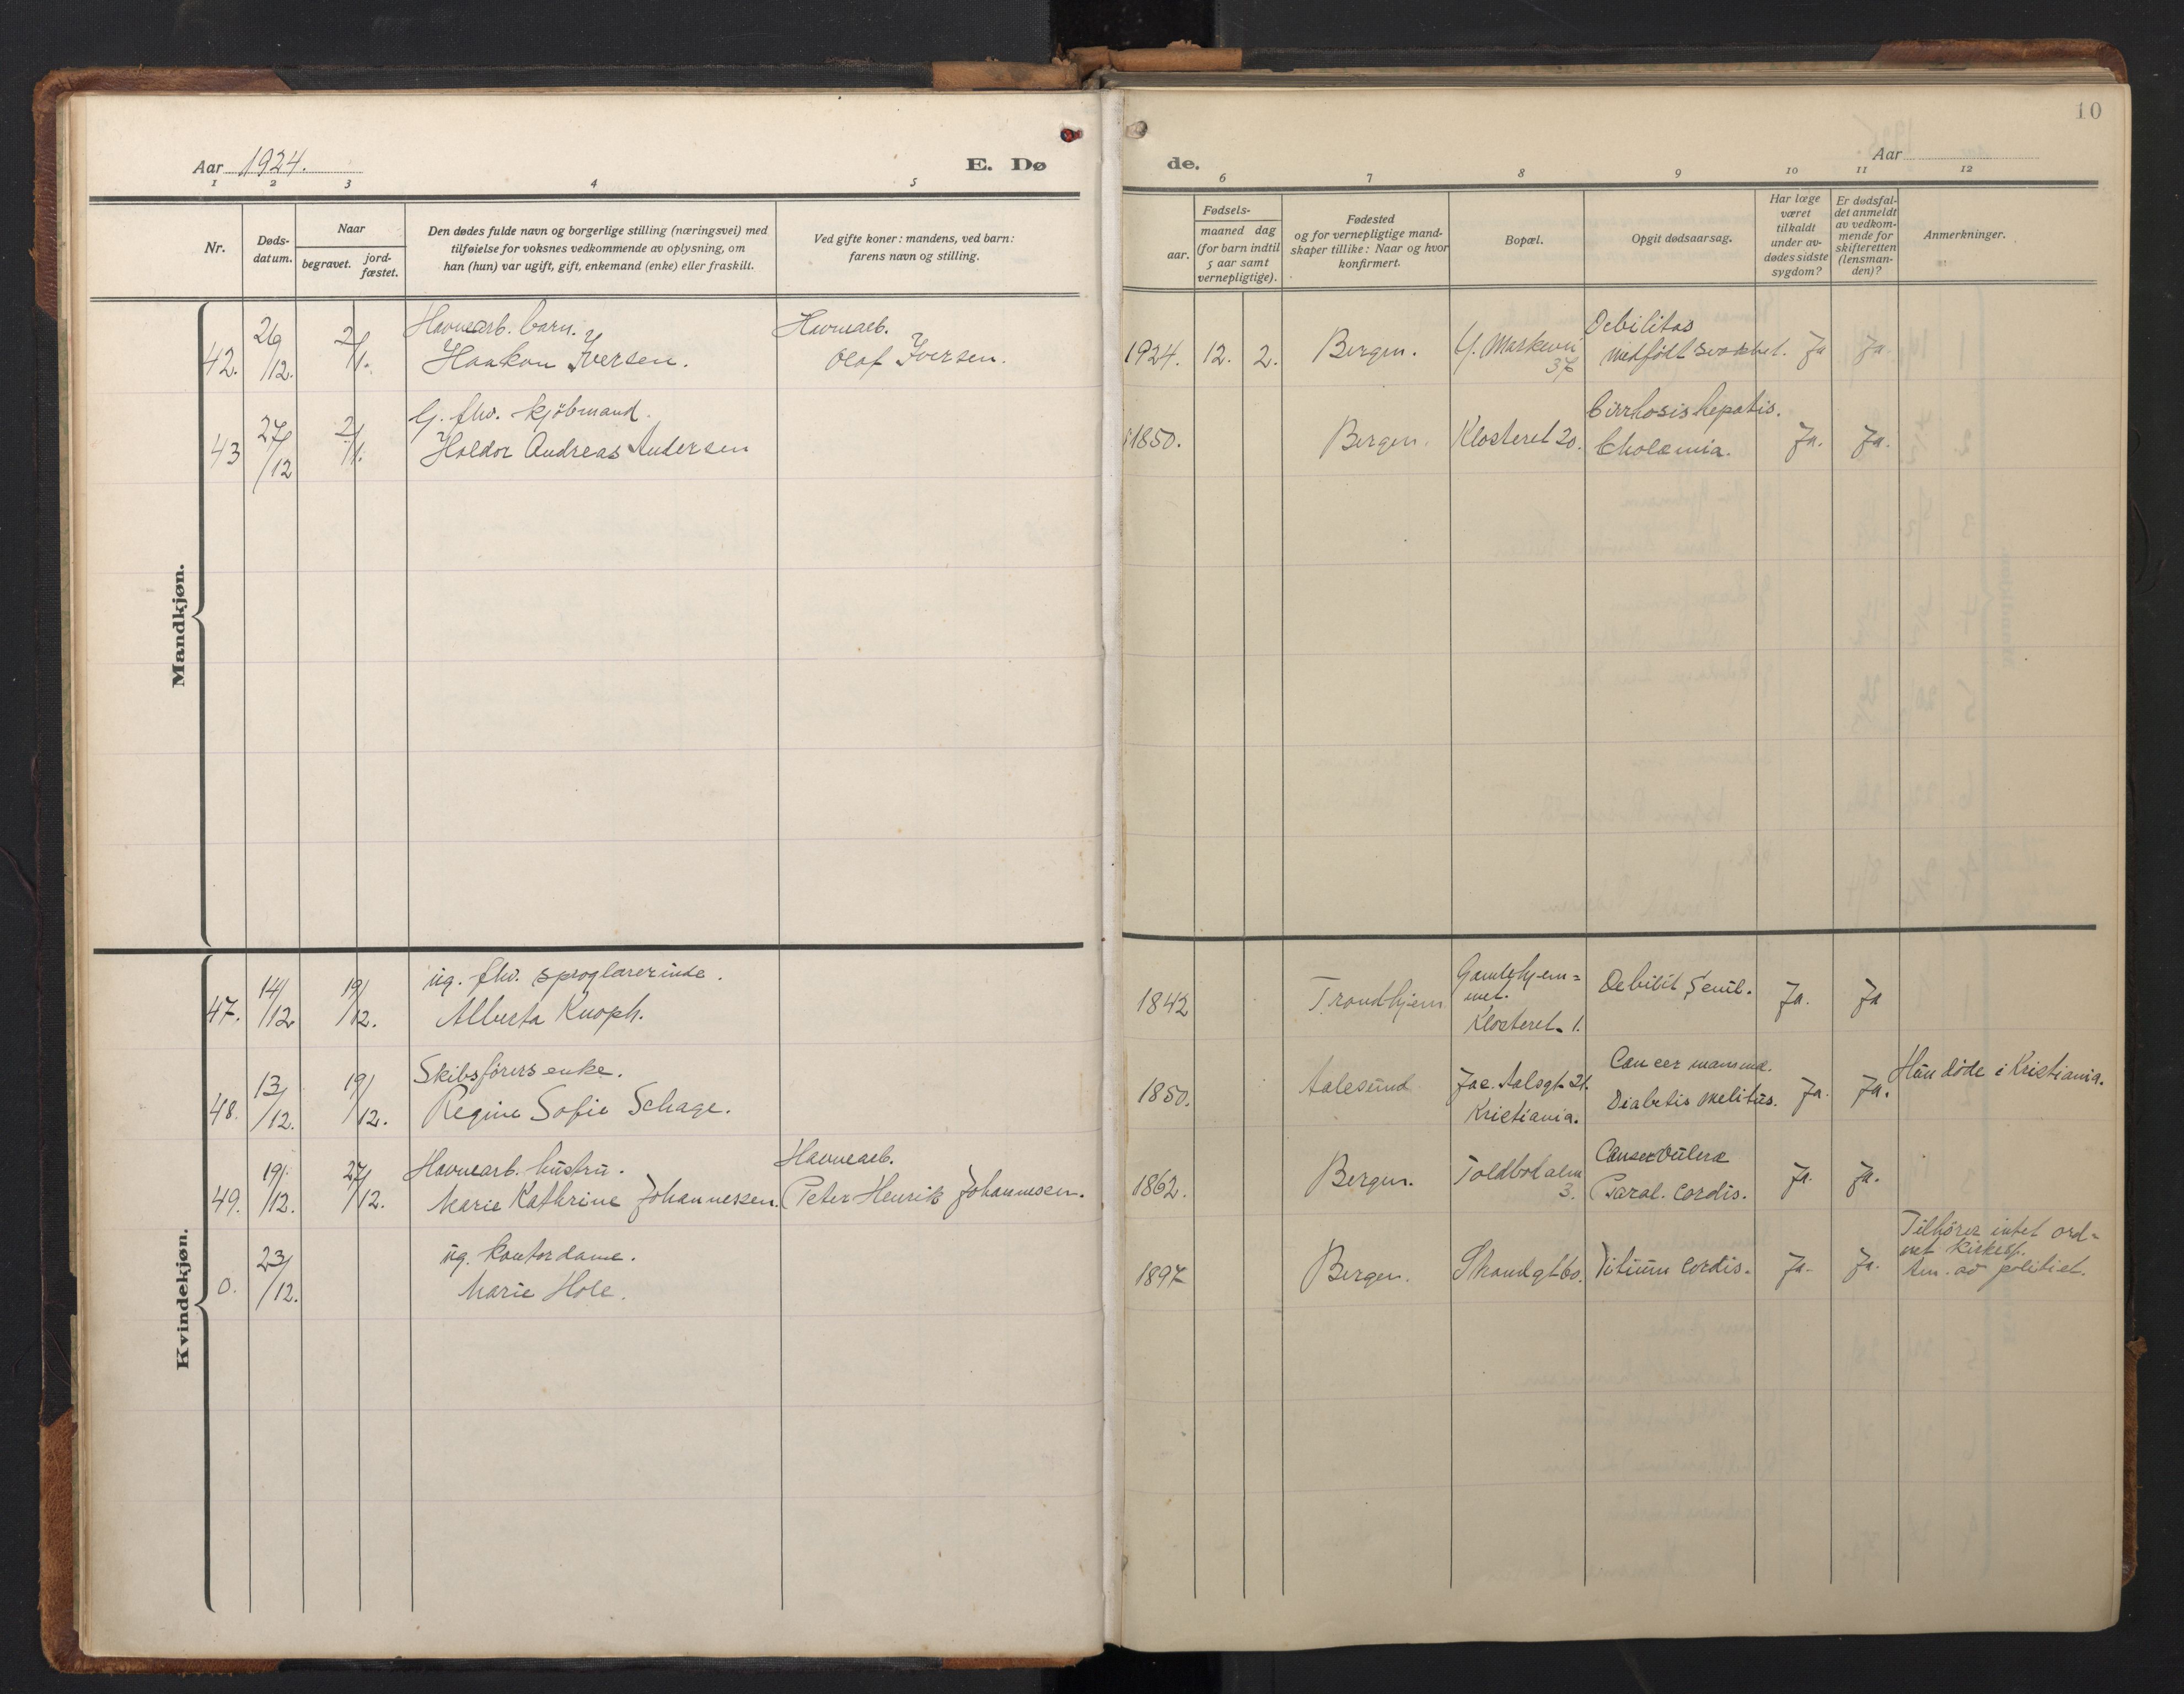 10
Aar 1924.
E. Dø
de.
Aar
1 2 3 4 5
6 7 8 9 10 11 12
Nr.
Døds-
datum.
Naar
begravet.
jord-
fæstet.
Den dødes fulde navn og borgerlige stilling (næringsvei) med
tilføielse for voksnes vedkommende av oplysning, om
han (hun) var ugift, gift, enkemand (enke) eller fraskilt.
Ved gifte koner: mandens, ved barn:
farens navn og stilling.
Fødsels-
aar.
maaned dag
(for barn indtil
5 aar samt
vernepligtige).
Fødested
og for vernepligtige mand-
skaper tillike: Naar og hvor
konfirmert.
Bopæl.
Opgit dødsaarsag.
Har læge
været
tilkaldt
under av-
dødes sidste
sygdom?
Er dødsfal-
det anmeldt
av vedkom-
mende for
skifteretten
(lensman-
den)?
Anmerkninger.
Mandkjøn.
42. 26/12. 2/1. Havnearb. barn.
Haakon Iversen.
Havnearb.
Olaf Iversen.
1924. 12. 2. Bergen. 37 Debilitas
medfödt svakhet. Ja Ja
43 27/12 2/1. G. fhv. kjöbmand.
Haldor Andreas Andersen
1850. Bergen. Klosteret 20. Cirrhosis hepatis.
Cholæmia. Ja. Ja.
Kvindekjøn.
47. 14/12 19/12. ug. fhv. sproglærerinde.
Alberta Knoph.
1842 Trondhjem Gamlehjem=
met.
Klosteret 1. Debilit Senil. Ja. Ja
48. 13/12. 19/12. Skibsförers enke.
Regine Sofie Schage.
1850. Aalesund Jac. Aalsgt 21.
Kristiania. Cancer mamma.
Diabetis melitus. Ja. Ja. Hun döde i Kristiania.
49. 19/12. 27/12. Havnearb. hustru.
Marie Kathrine Johannessen.
Havnearb.
Peter Henrik Johannessen.
1862. Bergen. Toldbodalm
3. Cancer vulera
Paral. Cordis. Ja. Ja.
0. 23/12. ug. kontordame.
Marie Hole.
1897 Bergen. Strandgt 60. Vitium Cordis. Ja. Ja. Tilhörer intet ord=
net kirkesf.
Anm. av politiet.